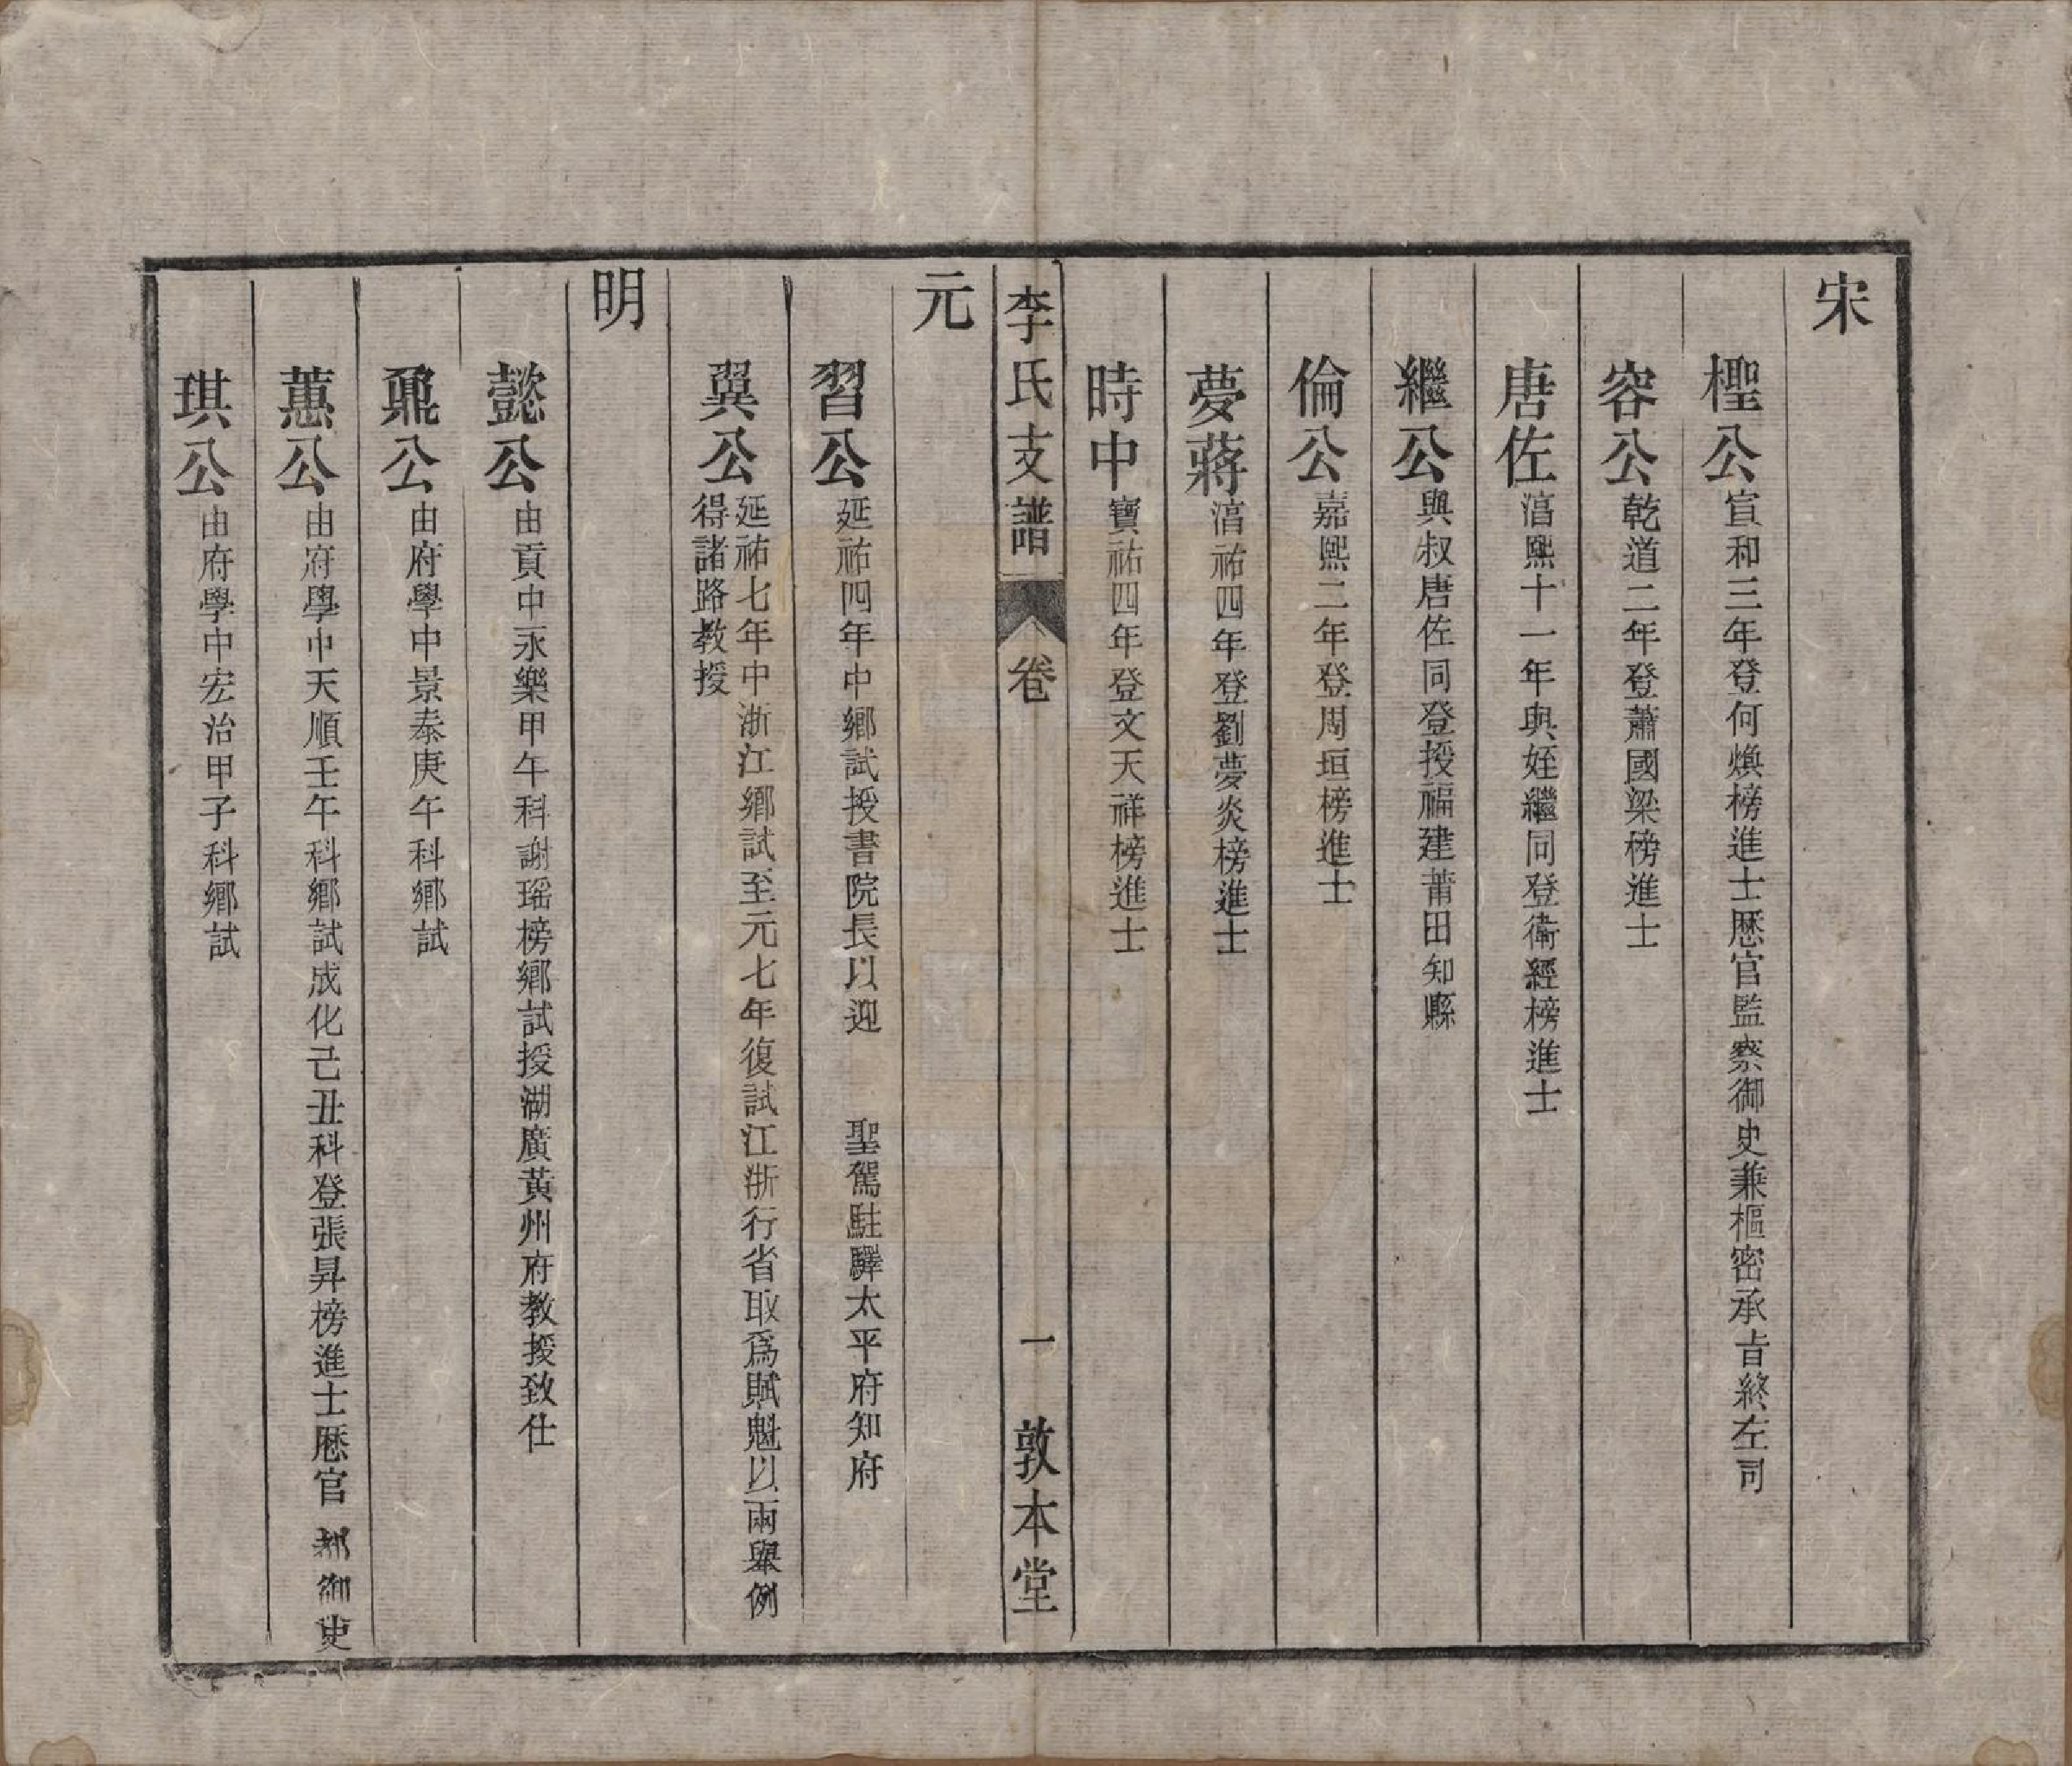 宋
檉公宣和三年登何煥榜進士歷官監察御史兼樞密承旨終左司
容公乾道二年登蕭國梁榜進士
唐佐淳熙十一年與姪繼同登衛經榜進士
繼公與叔唐佐同登授福建莆田知縣
倫公嘉熙二年登周垣榜進士
夢蔣淳祐四年登劉夢炎榜進士
時中寶祐四年登文天祥榜進士
李氏支譜 卷 一 敦本堂
元
習公延祐四年中鄉試授書院長以迎 聖駕駐驛太平府知府
翼公延祐七年中浙江鄉試至元七年復試江浙行省取爲賦魁以兩舉例
得諸路教授
明
懿公由貢中永樂甲午科謝瑶榜鄉試授湖廣黃州府教授致仕
鼐公由府學中景泰庚午科鄉試
蕙公由府學中天順壬午科鄉試成化己丑科登張昇榜進士歷官都御史
琪公由府學中宏治甲子科鄉試